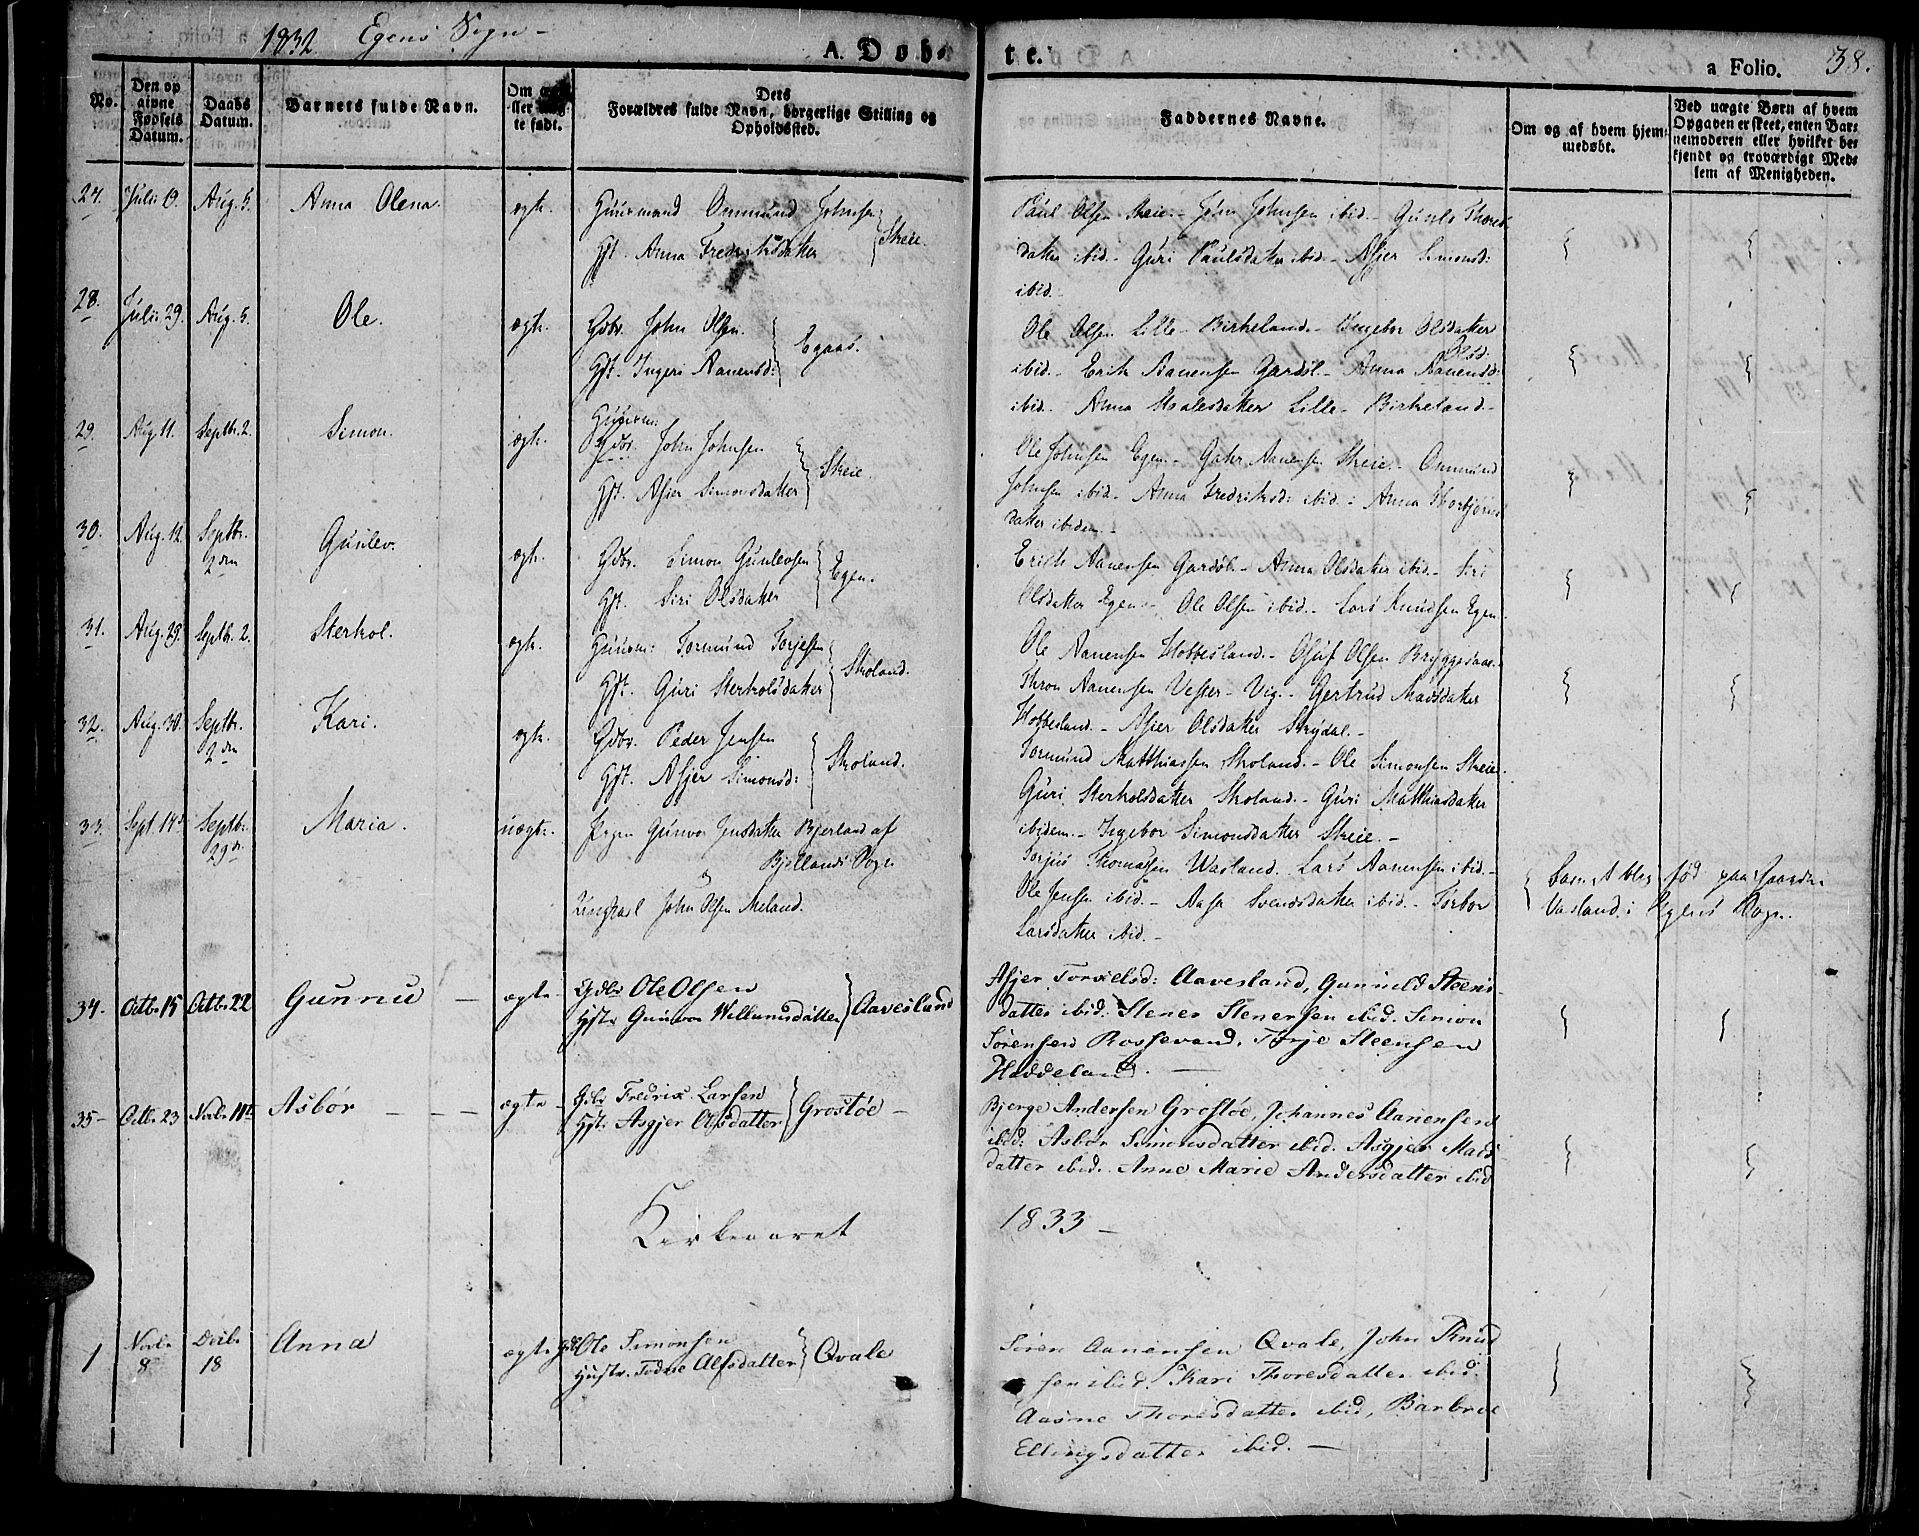 1832 Egens Sogn –
A. Døb-
te.
a Folio. 38.
No.
Den op
givne
Fødsels
Datum.
Daabs
Datum.
Barnets fulde Navn.
Om
te født.
Dets
Forældres fulde Navn, borgerlige Stilling og
Opholdssted.
Faddernes Navne.
Om og af hvem hjem-
medøbt.
Ved uægte Børn af hvem
Opgaven er skeet, enten Bar-
nemoderen eller hvilket be-
kjendt og troværdigt Med-
lem af Menigheden.
27. Julii 9. Aug. 5. Anna Olena. ægte. Huusmand Ommund Johnsen
Hst. Anna Fredriksdatter } Skeie.
Paul Olsen Skeie. – John Johnsen ibid. – Gunlo Thores-
datter ibid. – Guri Paulsdatter ibid. – Asjer Simonsd:
ibid. –
28. Julii 29. Aug. 5. Ole. ægte. Gdbr. John Olsen.
Hst. Ingeri Aanensd: } Egaas.
Ole Olsen Lille-Birkeland. – Ingebor Olsdatter
ibid. – Erik Aanensen Gardøl. – Anna Aanensd: Olsd:
ibid. – Anna Moalesdatter Lille-Birkeland. –
29. Aug. 11. Septbr. 2. Simon. ægte. Huusm:
Gdbr. John Johnsen
Hst. Asjer Simonsdatter } Skeie.
Ole Johnsen Egen. – Gahr Aanensen Skeie. – Ommund
Johnsen ibid. – Anna Fredriksd: ibid. – Anna Thorbjörns-
datter ibidem. –
30. Aug. 12. Septbr. 2den Gunlev. ægte. Gdbr. Simon Gunlevsen
Hst. Siri Olsdatter } Egen.
Erich Aanensen Gardøl. – Anna Olsdatter ibid. – Siri
Olsdatter Egen. – Ole Olsen ibid. – Lars Knudsen Egen.
31. Aug. 29. Septbr. 2. Sterkol. ægte. Huusm: Tormund Torjesen
Hst. Guri Sterkolsdatter } Skoland.
Ole Aanensen Hobbesland. – Osuf Olsen Bryggesaa. –
Thron Aanensen Vester-Vig. – Gertrud Madsdatter
Hobbesland. – Asjer Olsdatter Strydal. –
32. Aug. 30. Septbr. 2den Kari. ægte. Gdbr. Peder Jensen
Hst. Asjer Simonsd: } Skoland.
Tormund Matthiassen Skoland. – Ole Simonsen Skeie.
Guri Sterkolsdatter Skoland. – Guri Matthiasdatter
ibidem. – Ingebor Simonsdatter Skeie. –
33. Sept. 14. Septbr. 29de Maria. uægte. Pigen Gunvor Jensdatter Bjerland af
Bjellands Sogn
Ungkarl John Olsen Meland.
Torjus Thomassen Wasland. Lars Aanensen ibid. –
Ole Jensen ibid. – Aase Svendsdatter ibid. – Torbor
Larsdatter ibid. –
Barnet blev fød paa Gaarden
Vasland i Egens Sogn.
34. Octbr 15 Octbr 22 Gunnu – ægte – Gdbr Ole Olsen
Hstr Gunvor Willumsdatter } Aavesland
Asjer Torkelsd: Aavesland, Gunnild Steens-
datter ibid. Stener Stenersen ibid. Simon
Sörensen Rossevand. Torje Steensen
Haddeland. –
35 – Octbr 23 Novbr 11te Asbör – – – ægte – Gdbr Fredrix Larsen
Hstr Asgjer Olsdatter } Grostöe –
Bjerge Andersen Grostöe, Johannes Aanensen
ibid: Asbör Simonsdatter ibid. Asgjer Mads-
datter ibid. Anne Marie Andersdatter ibid
Kirkeaaret 1833 –
1 Novbr 8 Decbr 18 Anna ægte Gdbr Ole Simonsen
Hustr. Todne Alfsdatter } Qvale
Sören Aanensen Qvale, John Knud-
sen ibid. Kari Thoresdatter ibid.
Aasne Thoresdatter ibid, Barbroe
Ellingsdatter ibid. –